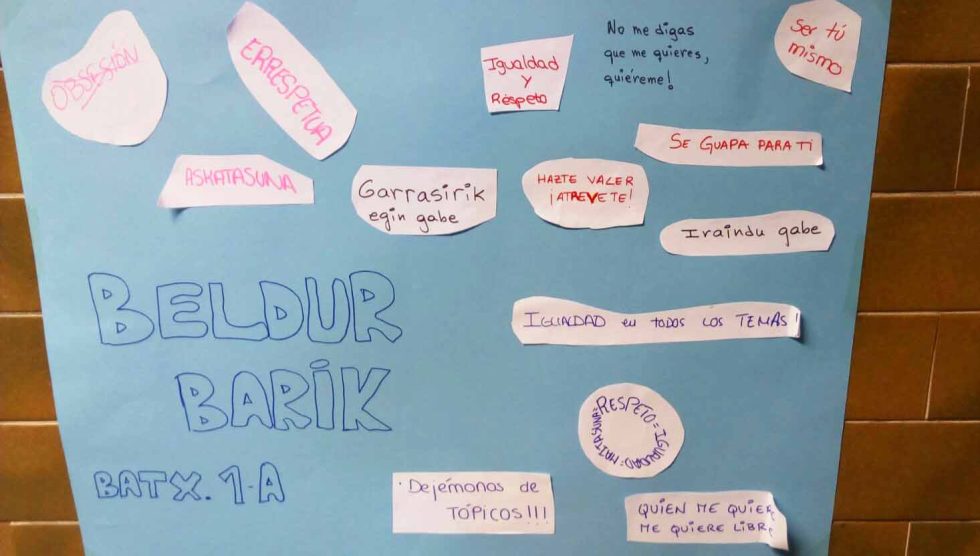 OBSESIÓN
ERRESPETUA
Igualdad
y
Respeto
No me digas
que me quieres,
quiéreme!
Ser tú
mismo
SE GUAPA PARA TI
ASKATASUNA
Garrasirik
egin gabe
HAZTE VALER
¡ATREVETE!
Iraindu gabe
BELDUR
BARIK
IGUALDAD en TODOS LOS TEMAS!
RESPETO = IGUALDAD = MAITASUNA =
BATX. 1-A
· Dejémonos de
TÓPICOS!!!
QUIEN ME QUIER
ME QUIERE LIBR